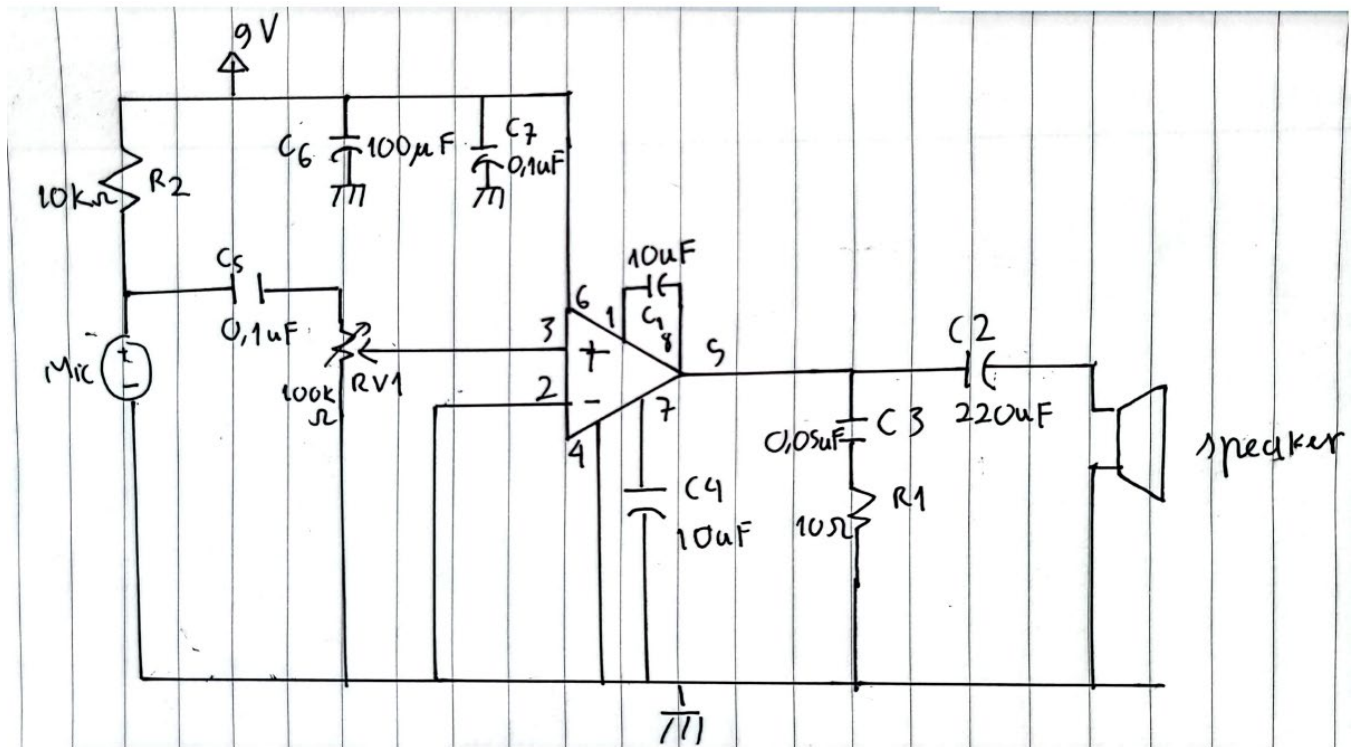 9V
C6 100µF
C7
0,1uF
10kΩ R2
C5
0,1uF
Mic
+
-
100k
Ω
RV1
10uF
C1
6
1
8
3
+
2
-
4
7
5
C4
10uF
C2
220uF
0,05uF C3
R1
10Ω
speaker